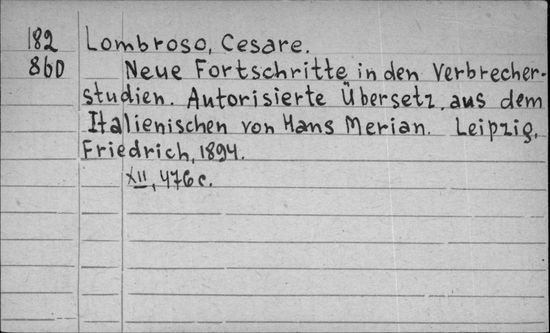 182 Lombroso, Cesare.
860 Neue Fortschritte in den Verbrecher-
studien. Autorisierte Übersetz. aus dem
Italienischen von Hans Merian. Leipzig,
Friedrich, 1894.
XII, 476 c.